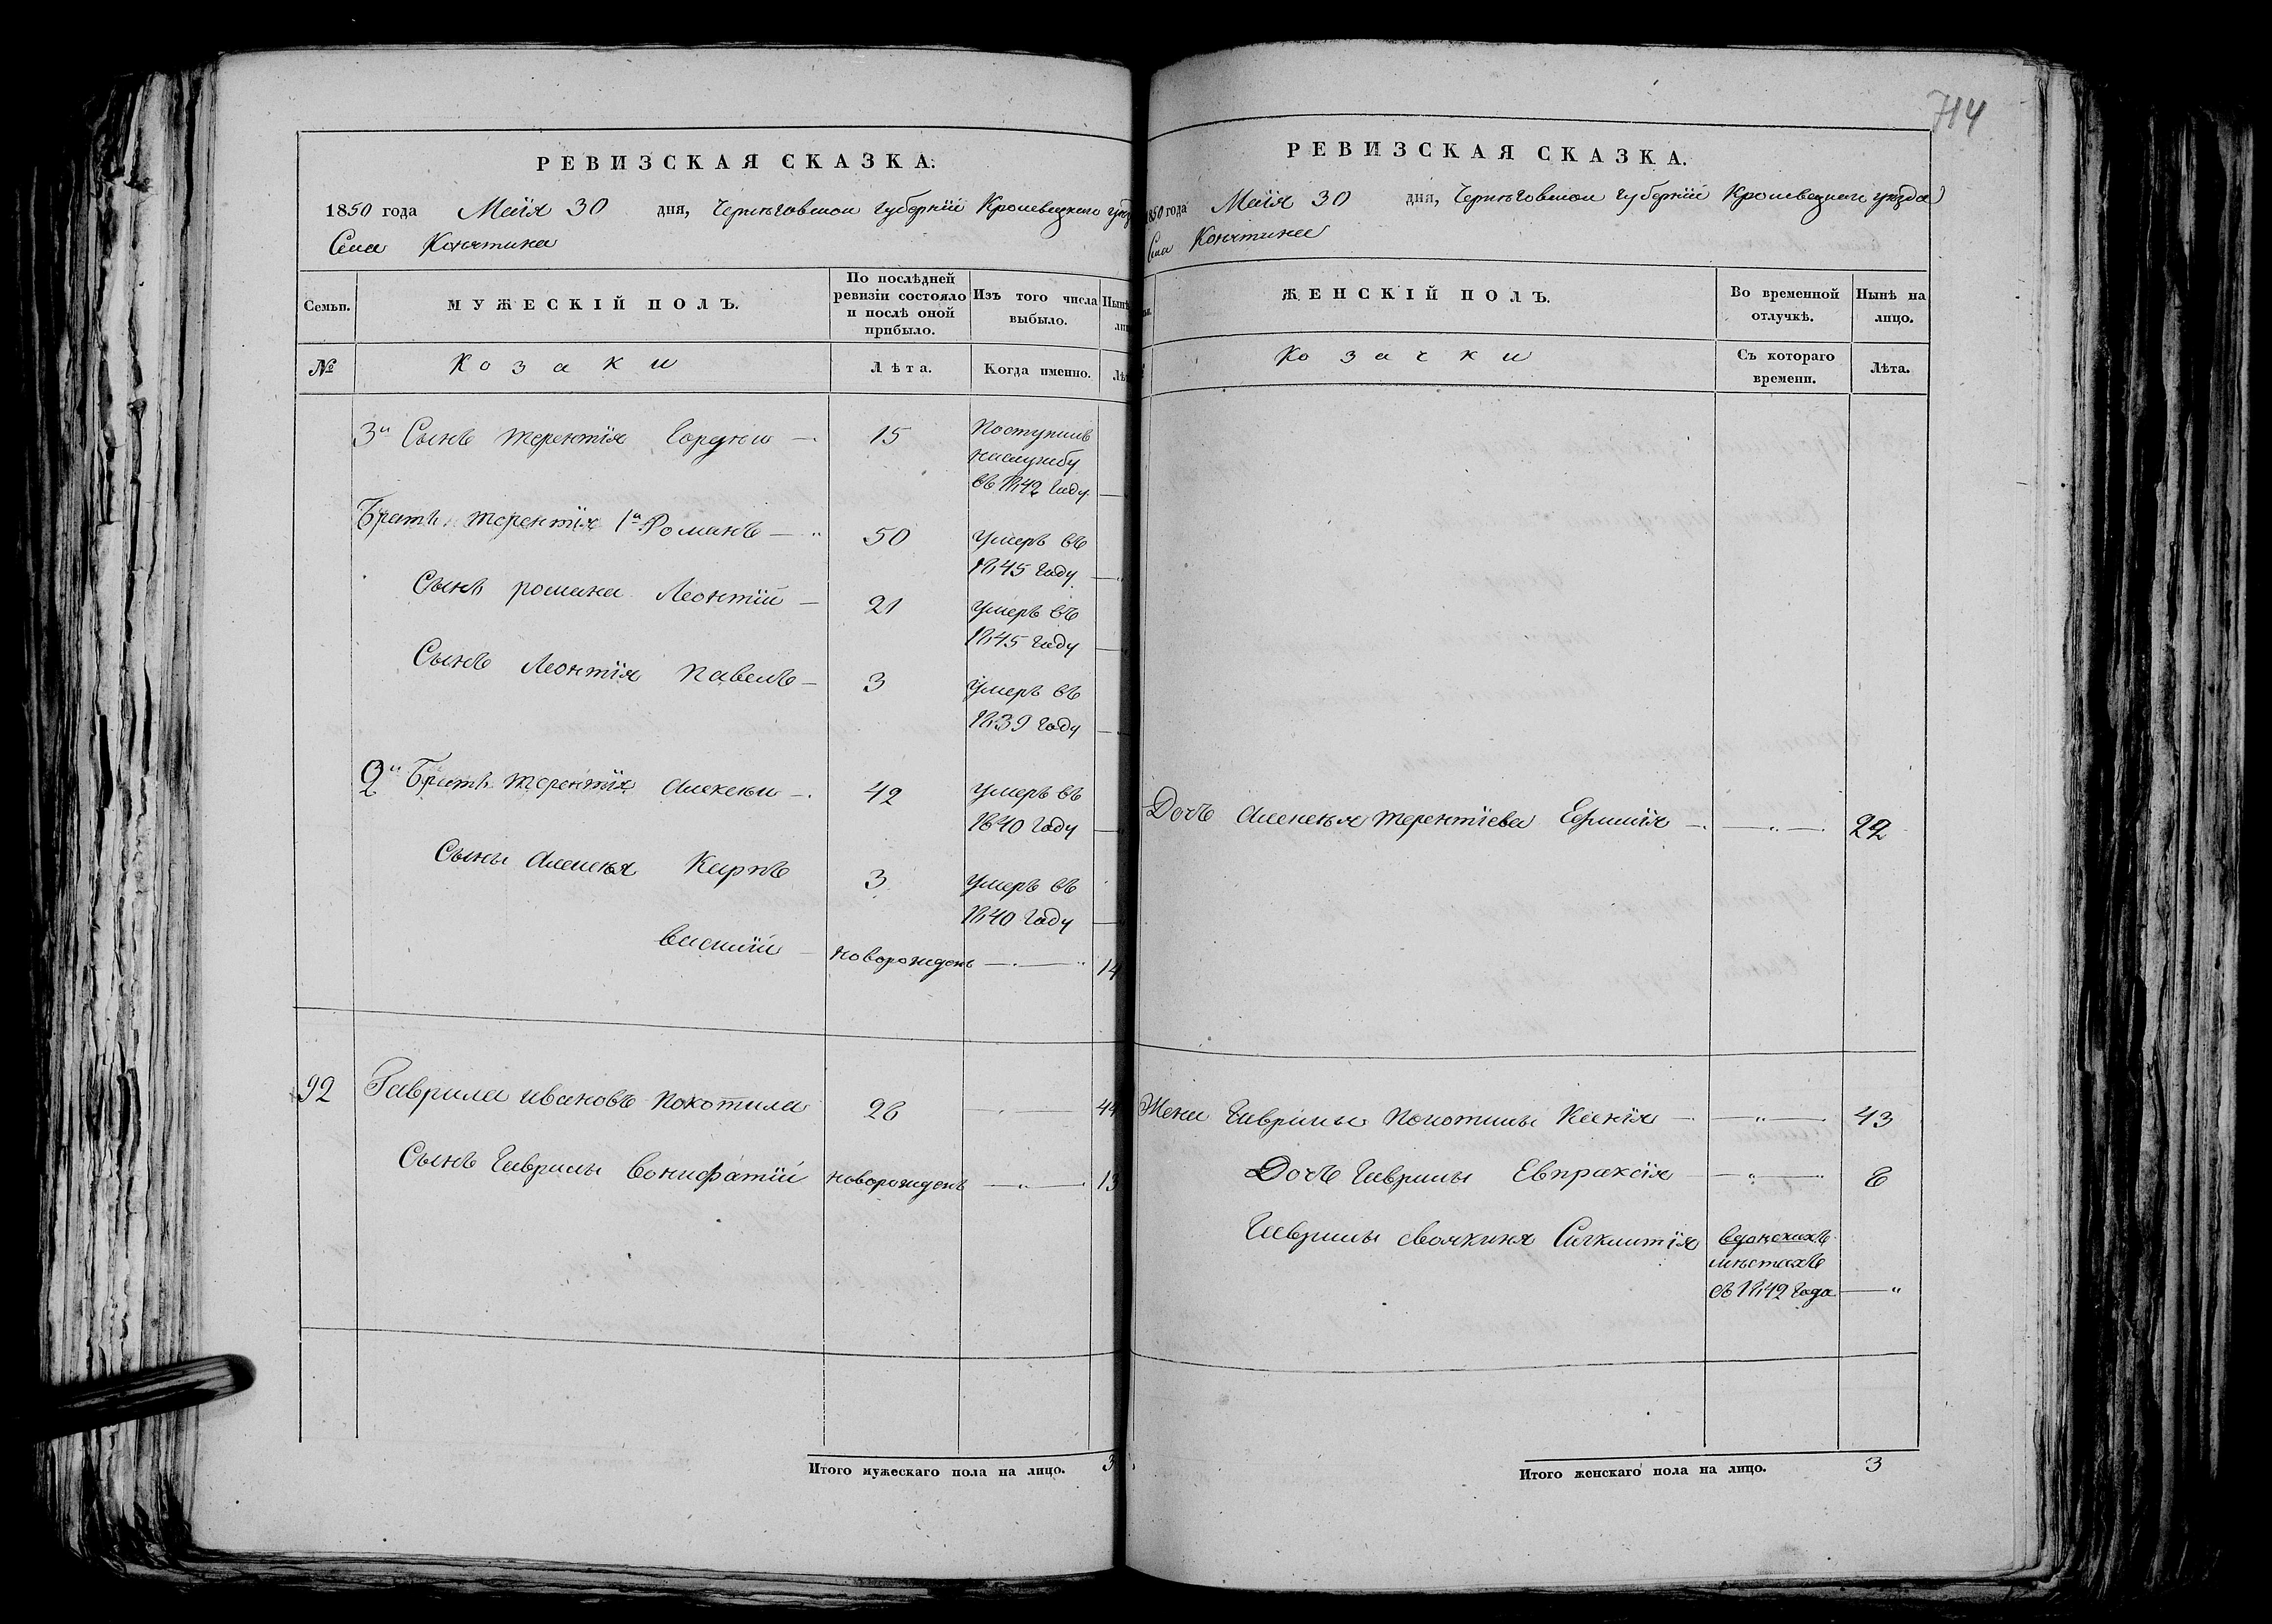 714
РЕВИЗСКАЯ СКАЗКА.
1850 года Маія 30 дня, Черниговской губерніи Кролевецкаго
Села
Семьи. МУЖЕСКІЙ ПОЛЪ. По послѣдней ревизіи состояло и послѣ оной прибыло. Изъ того числа выбыло.
№ Козаки Лѣта. Когда именно.
3й Сынъ Терентія 15 Поступилъ
на службу
въ 1842 году
Братъ Терентія 1й Романъ 50 Умеръ въ
1845 году
Сынъ романа Леонтій 21 Умеръ въ
1845 году
Сынъ Леонтія Павелъ 3 Умеръ въ
1839 году
2й Братъ Терентія Алексей 42 Умеръ въ
1840 году
Сыны Алексея Карпъ 3 Умеръ въ
1840 году
Василій новорожденъ 14
92 Гаврила ивановъ Покотила 28 44
Сынъ Гаврилы Вонифатій новорожденъ 13
Итого мужескаго пола на лицо. 3
РЕВИЗСКАЯ СКАЗКА.
1850 года Маія 30 дня, Черниговской губерніи Кролевецкаго уѣзда
Села
ЖЕНСКІЙ ПОЛЪ. Во временной отлучкѣ. Нынѣ на лицо.
Козачки Съ котораго времени. Лѣта.
Дочь Алексея Терентіева 22
Жена Гаврилы Покотилы Ксенія 43
Дочь Гаврилы Евпраксія 8
Гаврилы своячиня
въ донскихъ
местахъ
съ 1842 года
Итого женскаго пола на лицо. 3